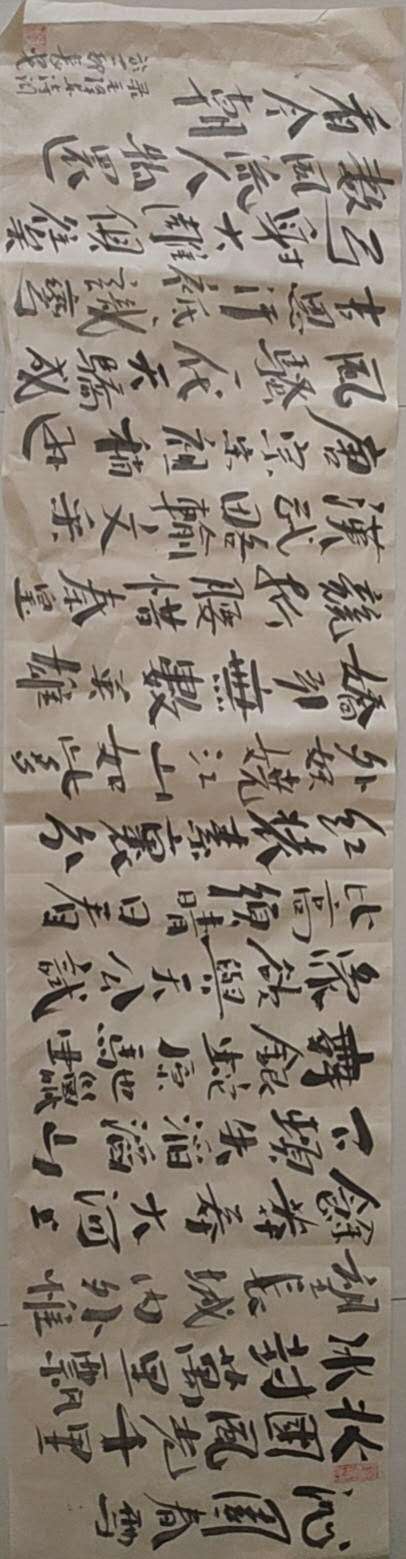 沁園春雪
北國風光千里
冰封萬里雪飄
望長城內外惟
餘莽莽大河上
下頓失滔滔山
舞銀蛇原馳蠟
象欲與天公試
比高須晴日看
紅裝素裹分
外妖嬈江山如此多
嬌引無數英雄
競折腰惜秦皇
漢武略輸文采
唐宗宋祖稍遜
風騷一代天驕成
吉思汗祇識彎
弓射大雕俱往矣
數風流人物還
看今朝